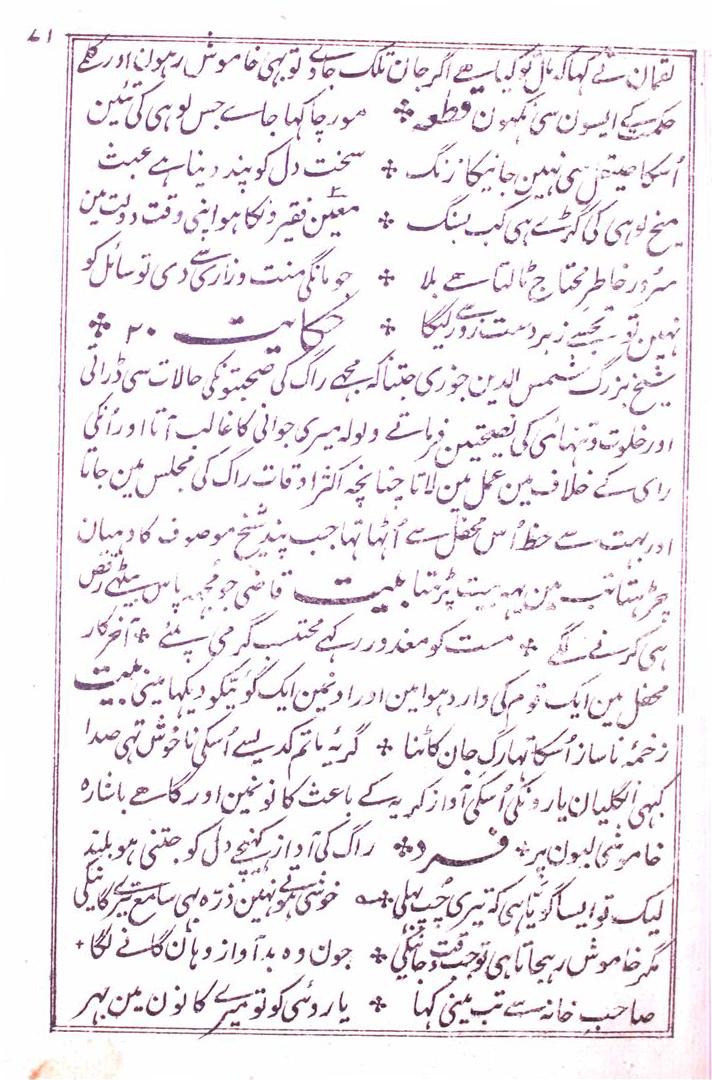 ۷۱
لقمان نے کہا کہ مال تو کیا ہے اگر جان تلک جاے تو بہی خاموش رہون اور کلمے
حکمت کے ایسون سی نکہون قطعہ ❖ مورچا کہا جاے جس لوہی کی تئین
اُسکا صیقل سی نہین جانیکا زنگ ❖ سخت دل کو پند دینا ہے عبث
میخ لوہی کی گڑے ہی کب بسنگ ❖ معین فقیرونکا ہو اپنی وقت دولت مین
سُرور خاطر محتاج ٹالتا ہے بلا ❖ جو مانگی منت و زاری سے دی تو سائل کو
نہین تو تجھسے زبردست زور سے لیگا ❖ حکایت ۲۰ ❖
شیخ بزرگ شمس الدین جوزی جتنا کہ مجھے راگ کی صحبتونکی حالات سی ڈراتی
اور خلوت و تنہائی کی نصیحتین فرماتے ولولہ میری جوانی کا غالب آتا اور اُنکی
رای کے خلاف مین عمل مین لاتا چنانچہ اکثر اوقات راگ کی مجلس مین جاتا
اور بہت سے حظ اُس محفل سے اُٹہاتا تہا جب پند شیخ موصوف کا دہیان
چڑہتا تب مین یہہ بیت پڑہتا بیت قاضی جو مجہہ پاس بیٹھے رقص
ہی کرنے لگے ❖ مست کو معذور رکہے محتسب گر می پئے ❖ آخر کار
محفل مین ایک قوم کی وارد ہوا مین اور اونمین ایک گوئیکو دیکہا مینی بیت
زخمۂ ناساز اُسکا تہا رگ جان کاٹتا ❖ گریۂ ماتم کدیسے اُسکی ناخوش تہی صدا
کبہی انگلیان یارونکی اُسکی آواز کریہ کے باعث کانونمین اور گاہے باشارہ
خاموشی لبون پر ❖ فرد ❖ راگ کی آواز کہینچے دل کو جتنی ہو بلند
لیک تو ایسا گویا ہی کہ تیری چپ بہلی ❖ خوشی ہوتے نہین ذرّہ بہی سامع تیرے گانیکی
مگر خاموش رہجاتا ہی تو جب وقت جانیکی ❖ جون وہ بدآواز وہان گانے لگا ❖
صاحب خانہ سے تب مینی کہا ❖ یا روئی کو تو میرے کانون مین بہر